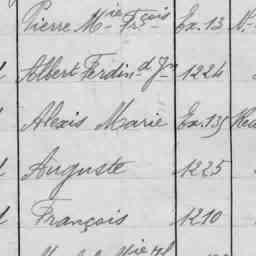 Pierre Mie Frçois Ex. 13 N.
Albert Ferdind Jn 1224
Alexis Marie Ex. 135
Auguste 1225
François 1210